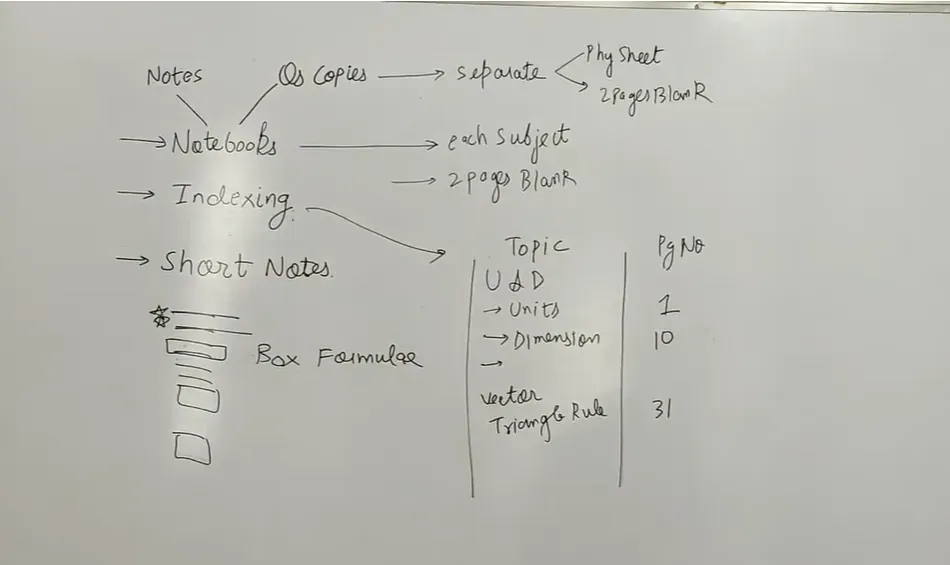 Notes Qs Copies → separate Phy Sheet
→ 2 pages Blank
→ Notebooks → each Subject
→ 2 pages Blank
→ Indexing
→ Short Notes.
Box Formulae
Topic Pg No
U & D
→ Units 1
→ Dimension 10
→
Vector
Triangle Rule 31